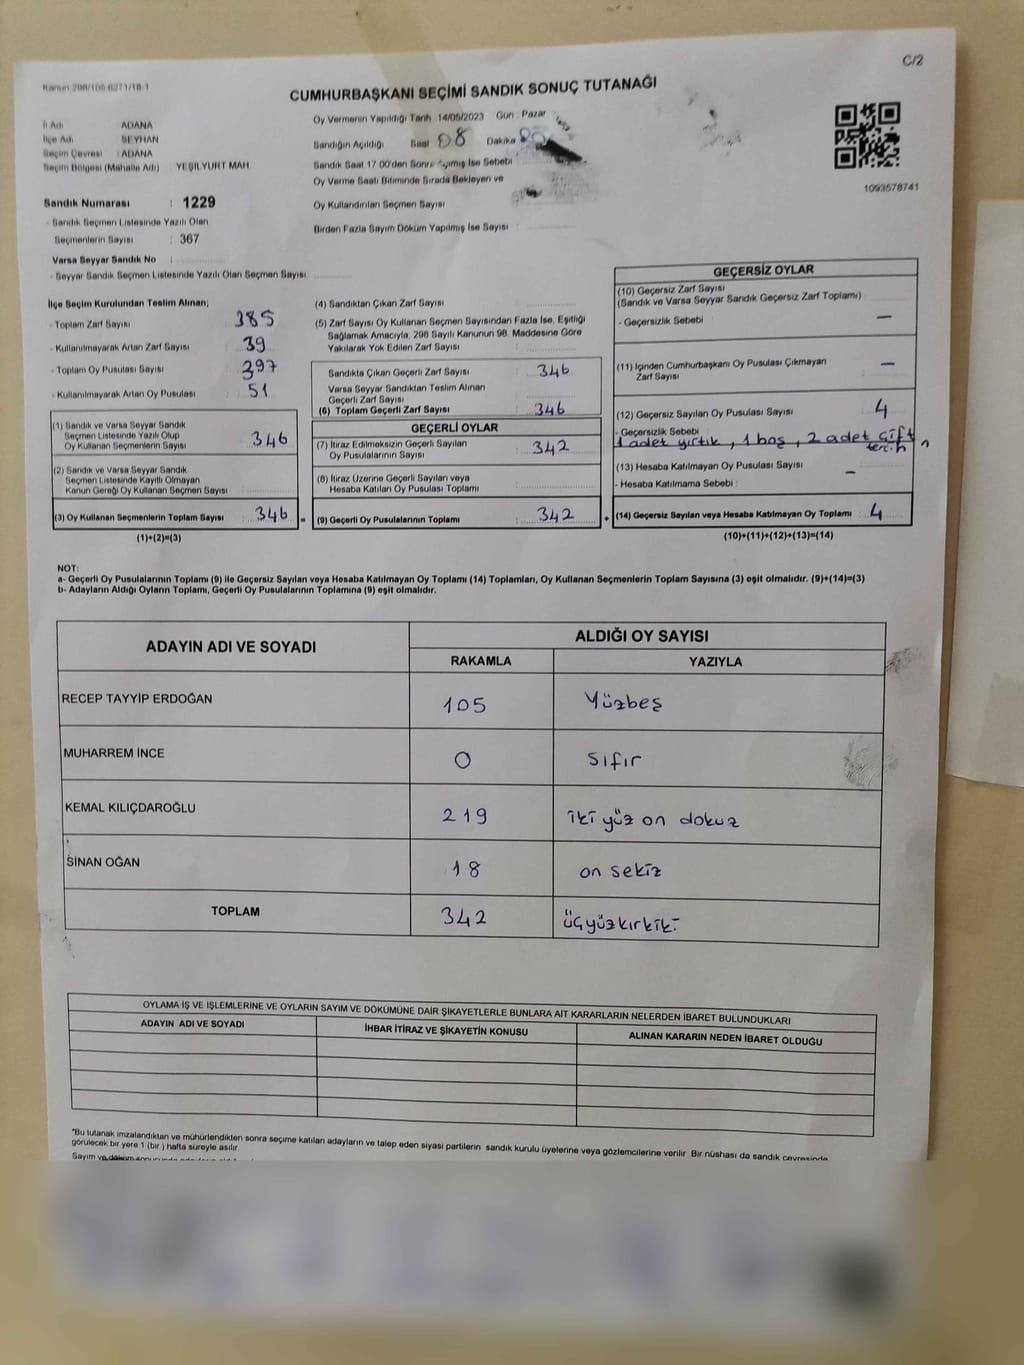 C/2
Kanun 298/105 6271/18-1
CUMHURBAŞKANI SEÇİMİ SANDIK SONUÇ TUTANAĞI
İl Adı ADANA
İlçe Adı SEYHAN
Seçim Çevresi : ADANA
Seçim Bölgesi (Mahalle Adı) YEŞİLYURT MAH.
Oy Vermenin Yapıldığı Tarih 14/05/2023 Gün : Pazar
Sandığın Açıldığı Saat 08 Dakika
Sandık Saat 17 00'den Sonra Açmış İse Sebebi
Oy Verme Saati Bitiminde Sırada Bekleyen ve
Oy Kullandırılan Seçmen Sayısı
Birden Fazla Sayım Döküm Yapılmış İse Sayısı :
1093578741
Sandık Numarası : 1229
- Sandık Seçmen Listesinde Yazılı Olan
Seçmenlerin Sayısı : 367
Varsa Seyyar Sandık No :
- Seyyar Sandık Seçmen Listesinde Yazılı Olan Seçmen Sayısı :
İlçe Seçim Kurulundan Teslim Alınan;
- Toplam Zarf Sayısı : 385
- Kullanılmayarak Artan Zarf Sayısı : 39
- Toplam Oy Pusulası Sayısı : 397
- Kullanılmayarak Artan Oy Pusulası : 51
(1) Sandık ve Varsa Seyyar Sandık
Seçmen Listesinde Yazılı Olup
Oy Kullanan Seçmenlerin Sayısı : 346
(2) Sandık ve Varsa Seyyar Sandık
Seçmen Listesinde Kayıtlı Olmayan
Kanun Gereği Oy Kullanan Seçmen Sayısı :
(3) Oy Kullanan Seçmenlerin Toplam Sayısı : 346 =
(1)+(2)=(3)
(4) Sandıktan Çıkan Zarf Sayısı :
(5) Zarf Sayısı Oy Kullanan Seçmen Sayısından Fazla İse, Eşitliği
Sağlamak Amacıyla, 298 Sayılı Kanunun 98. Maddesine Göre
Yakılarak Yok Edilen Zarf Sayısı :
Sandıkta Çıkan Geçerli Zarf Sayısı : 346
Varsa Seyyar Sandıktan Teslim Alınan
Geçerli Zarf Sayısı :
(6) Toplam Geçerli Zarf Sayısı : 346
GEÇERLİ OYLAR
(7) İtiraz Edilmeksizin Geçerli Sayılan
Oy Pusulalarının Sayısı : 342
(8) İtiraz Üzerine Geçerli Sayılan veya
Hesaba Katılan Oy Pusulası Toplamı :
(9) Geçerli Oy Pusulalarının Toplamı : 342 +
GEÇERSİZ OYLAR
(10) Geçersiz Zarf Sayısı
(Sandık ve Varsa Seyyar Sandık Geçersiz Zarf Toplamı) : —
- Geçersizlik Sebebi :
(11) İçinden Cumhurbaşkanı Oy Pusulası Çıkmayan
Zarf Sayısı : —
(12) Geçersiz Sayılan Oy Pusulası Sayısı : 4
- Geçersizlik Sebebi :
1 adet yırtık, 1 boş, 2 adet çift
tercih
(13) Hesaba Katılmayan Oy Pusulası Sayısı : —
- Hesaba Katılmama Sebebi :
(14) Geçersiz Sayılan veya Hesaba Katılmayan Oy Toplamı : 4
(10)+(11)+(12)+(13)=(14)
NOT:
a- Geçerli Oy Pusulalarının Toplamı (9) ile Geçersiz Sayılan veya Hesaba Katılmayan Oy Toplamı (14) Toplamları, Oy Kullanan Seçmenlerin Toplam Sayısına (3) eşit olmalıdır. (9)+(14)=(3)
b- Adayların Aldığı Oyların Toplamı, Geçerli Oy Pusulalarının Toplamına (9) eşit olmalıdır.
ADAYIN ADI VE SOYADI
ALDIĞI OY SAYISI
RAKAMLA YAZIYLA
RECEP TAYYİP ERDOĞAN 105 Yüzbeş
MUHARREM İNCE 0 Sıfır
KEMAL KILIÇDAROĞLU 219 iki yüz on dokuz
SİNAN OĞAN 18 on sekiz
TOPLAM 342 üçyüzkırkiki
OYLAMA İŞ VE İŞLEMLERİNE VE OYLARIN SAYIM VE DÖKÜMÜNE DAİR ŞİKAYETLERLE BUNLARA AİT KARARLARIN NELERDEN İBARET BULUNDUKLARI
ADAYIN ADI VE SOYADI İHBAR İTİRAZ VE ŞİKAYETİN KONUSU ALINAN KARARIN NEDEN İBARET OLDUĞU
*Bu tutanak imzalandıktan ve mühürlendikten sonra seçime katılan adayların ve talep eden siyasi partilerin sandık kurulu üyelerine veya gözlemcilerine verilir. Bir nüshası da sandık çevresinde
görülecek bir yere 1 (bir) hafta süreyle asılır
Sayım ve